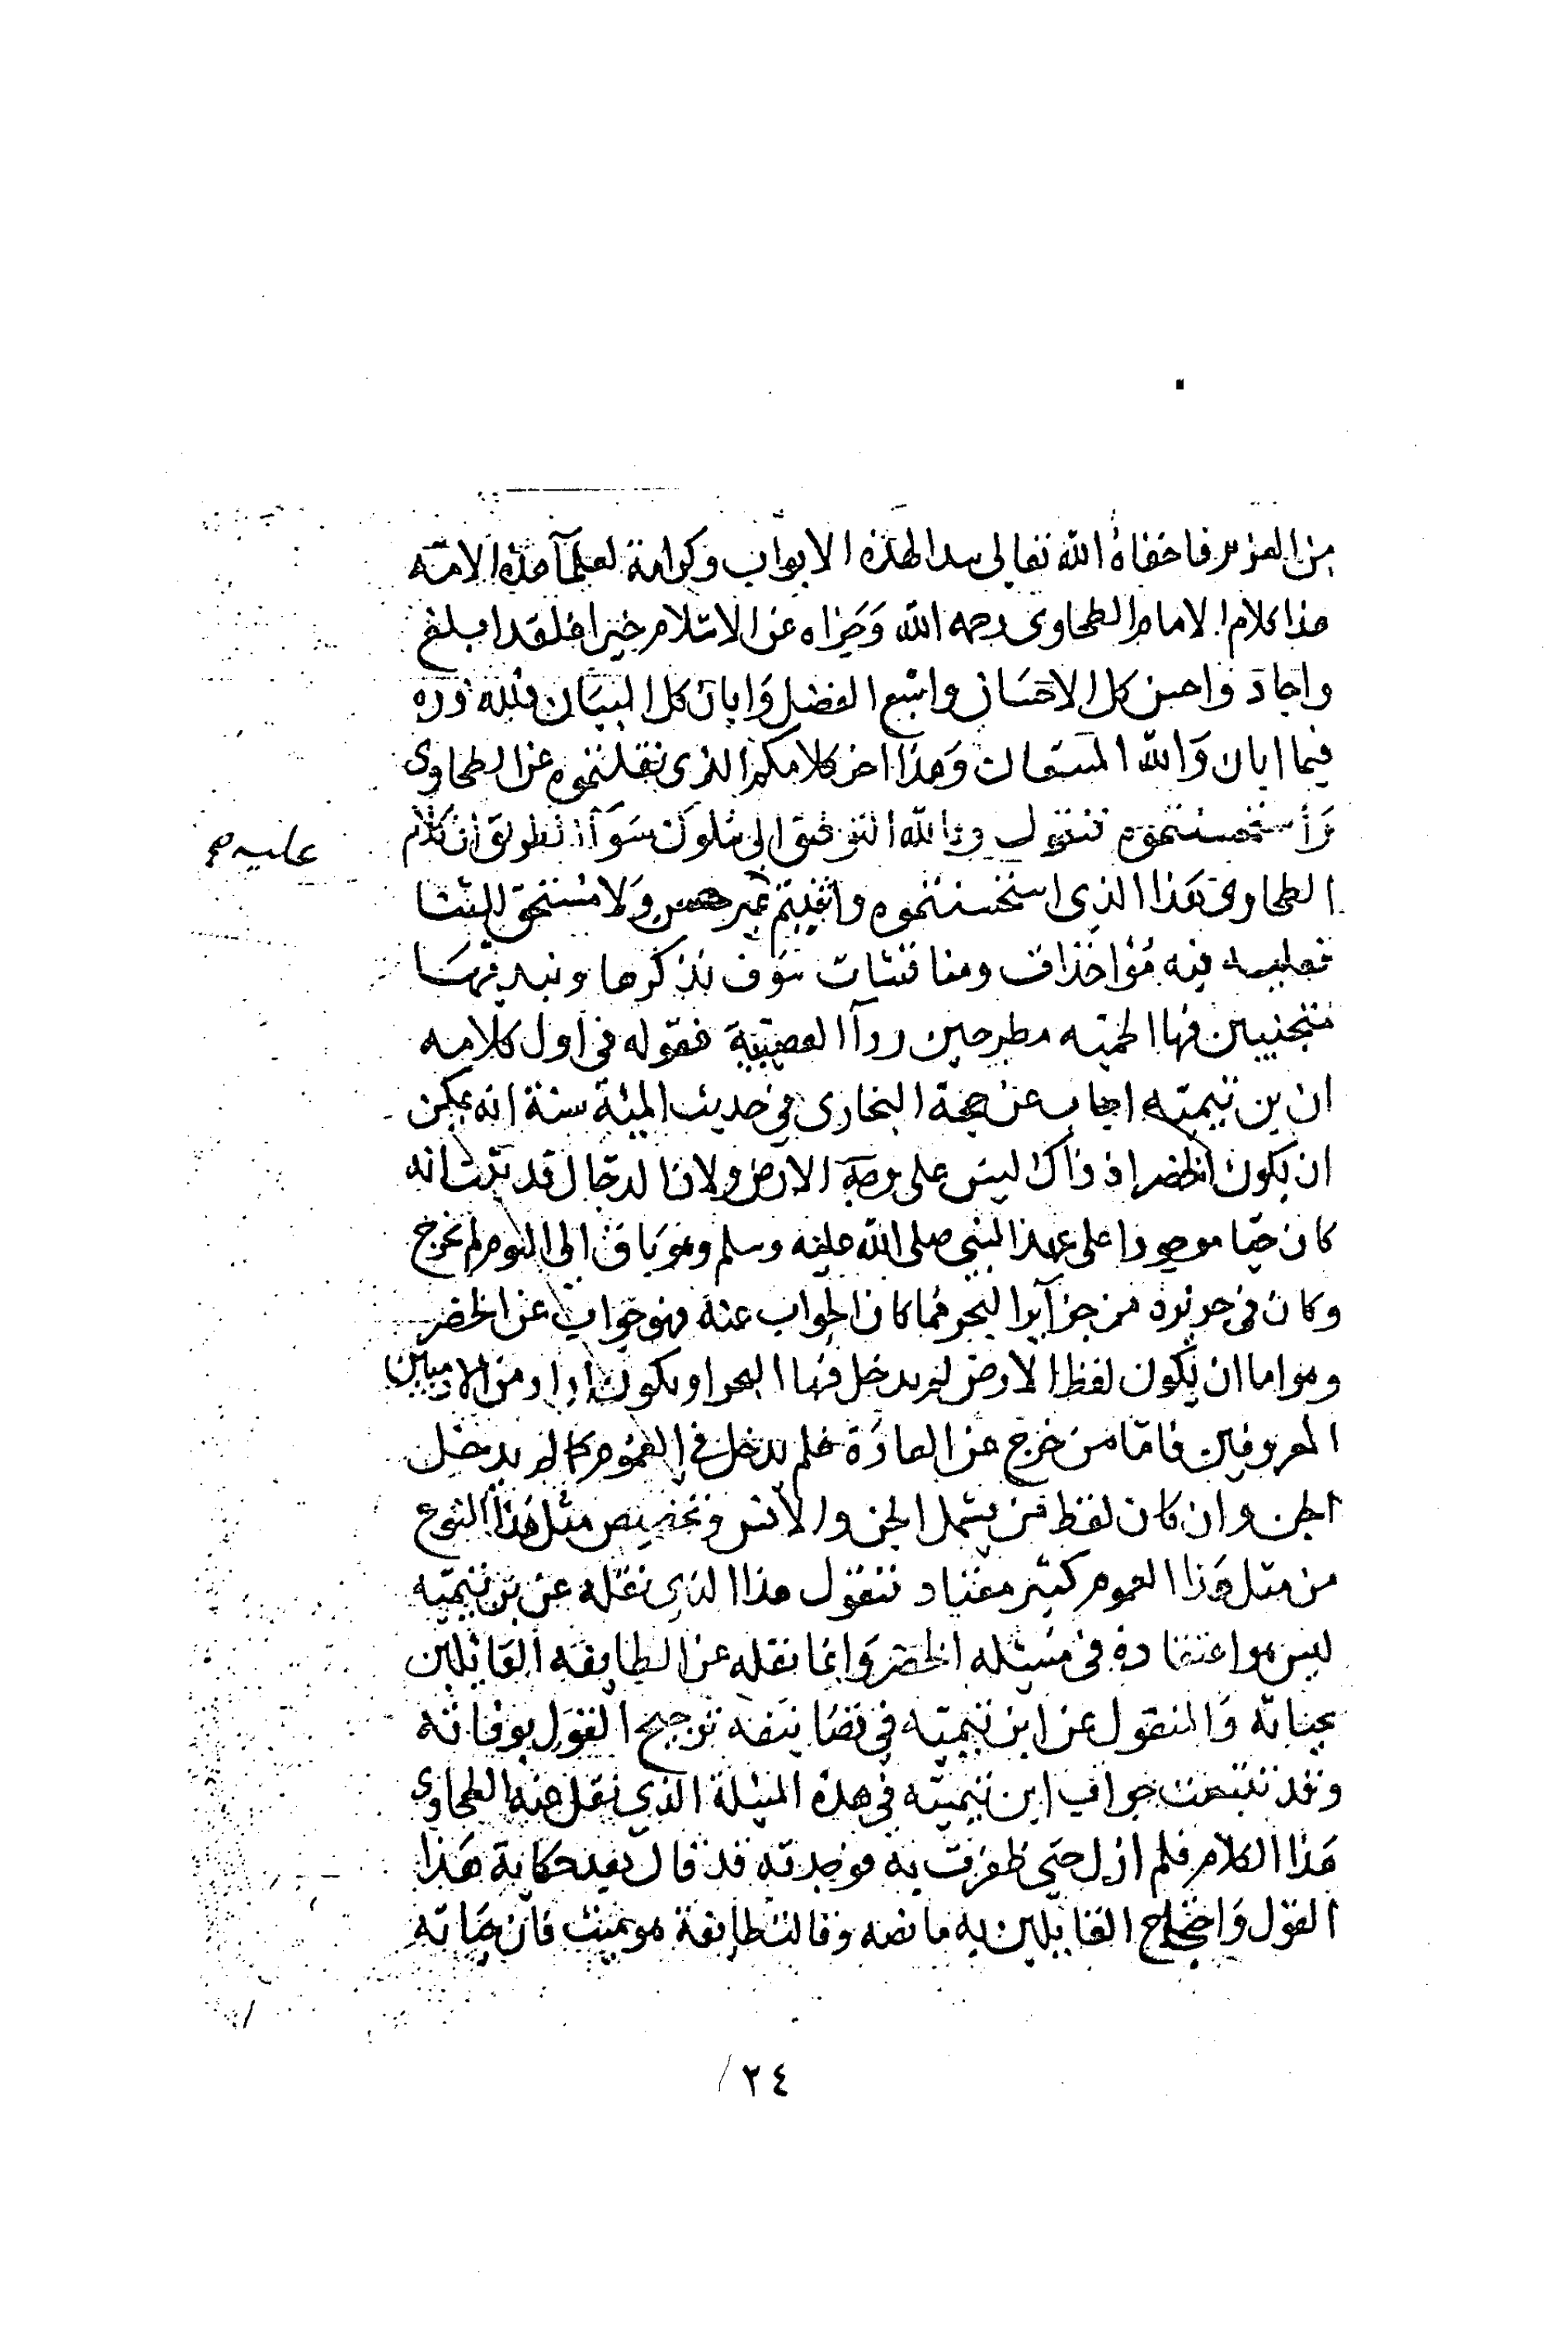 من الغرير فاخفاه الله تعالى سدا لهذه الابواب وكرامة لعلمآ هذه الامته
هذا كلام الامام الطحاوى رحمه الله وَجزاه عن الاسلام خيرا فلقد ابلغ
واجاد واحسن كل الاحسَان واشبع الفضل وَابان كل البيَان فلله دره
فيما ابان وَالله المستعان وَهذا اخر كلامكم الذى نقلتموه عن الطحاوى
واستحسنتموه فنقول وبالله التوفيق الى سلوك سَوآء الطريق ان كلام
الطحاوى هَذا الذى استحسنتموه واثنيتم غير حسن وَلا مستحق للثنا
عليه صح
فعليه فيه مُؤاخذات ومناقشات سَوف نذكرها ونبديهَا
متجنبين فيها الحميّه مطرحين ردآ العصبيَّة فقوله فى اول كلامه
ان بن تيميّه اجاب عن حجة البخارى فى حديث المئة سنة انه يمكن
ان يكون الخضر اذ ذاك ليس على وجه الارض ولان الدجّال قد ثبت انه
كان حيّا موجودا على عهد النبى صلى الله عليه وسلم وهوَ باق الى اليوم لم يخرج
وكان فى جزيرة من جزآير البحر فما كان الجواب عنه فهو جواب عن الخضر
وهو اما ان يكون لفظ الارض لم يدخل فيها البحر او يكون اراد من الادميين
المعروفين فامّا من خرج عن العادَة فلم يدخل فى العموم كما لم يدخل
الجن وان كان لفظ من يشمل الجن والانس وتخصيص مثل هَذا النوع
من مثل هَذا العموم كثير معتاد فنقول هذا الذى نقله عن بن تيميّه
ليس هو اعتقاده فى مسئله الخضر وَانما نقله عن الطايفه القائلين
بحياته وَالمنقول عن ابن تيميّه فى تصَانيفه ترجيح القوَل بوفاته
وقد تتبعت جواب ابن تيميّه فى هذه المسئلة الذى نقل عنه الطحاوى
هَذا الكلام فلم ازل حتى ظفرت به فوجدته قد قال بعد حكاية هَذا
القول وَاحتجاج القايلين به ما نصه وقالت طايفة هو ميت فان حيَاته
٢٤/